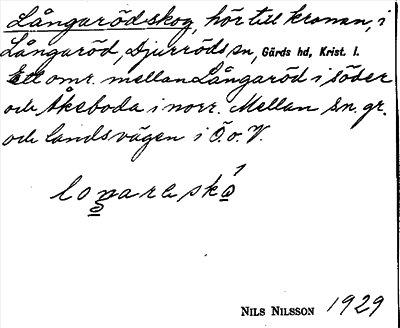 Långaröd skog, hör till kronan, i
Långaröd, Djurröds sn, Gärds hd, Krist. l.
Ett omr. mellan Långaröd i söder
och Åkeboda i norr. Mellan sn. gr.
och landsvägen i Ö. o. V.
NILS NILSSON 1929